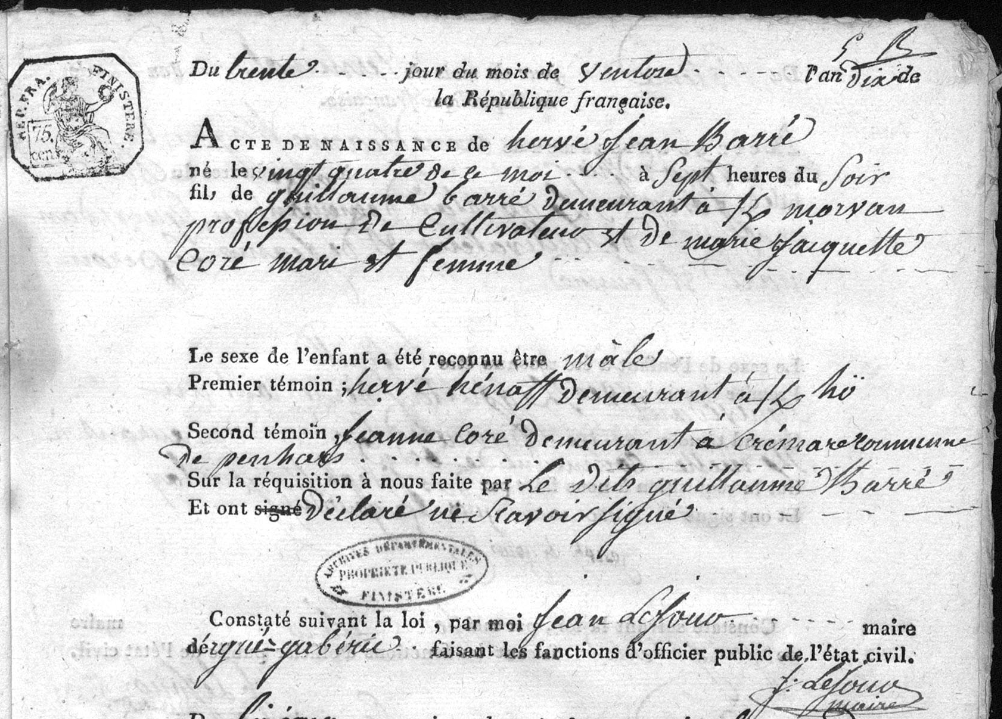 G B
REP. FRA. FINISTERE.
75. cen.
Du trente jour du mois de ventose l'an dix de
la République française.
ACTE DE NAISSANCE de hervé jean Barré
né le vingt quatre de ce moi à Sept heures du Soir
fils de guillaume barré demeurant à morvan
profession de Cultivateur et de marie jaiquette
Coré mari et femme
Le sexe de l'enfant a été reconnu être mâle
Premier témoin ; hervé hénaff demeurant à hö
Second témoin , jeanne Coré demeurant à Crémare commune
De penhars
Sur la réquisition à nous faite par Le dit guillaume Barré
Et ont signé Déclaré ne Scavoir signé
ARCHIVES DÉPARTEMENTALES
PROPRIETE PUBLIQUE
FINISTÈRE
Constaté suivant la loi, par moi Jean Lejour maire
dérgué-gabéric faisant les fonctions d'officier public de l'état civil.
J: Lejour
maire